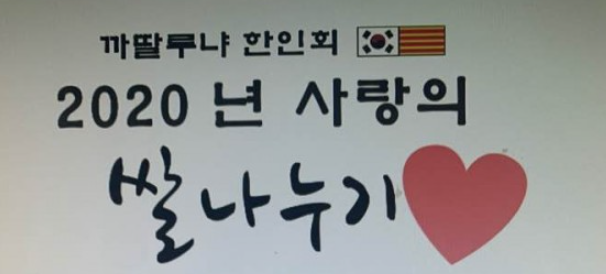 까딸루냐 한인회
2020 년 사랑의
쌀나누기